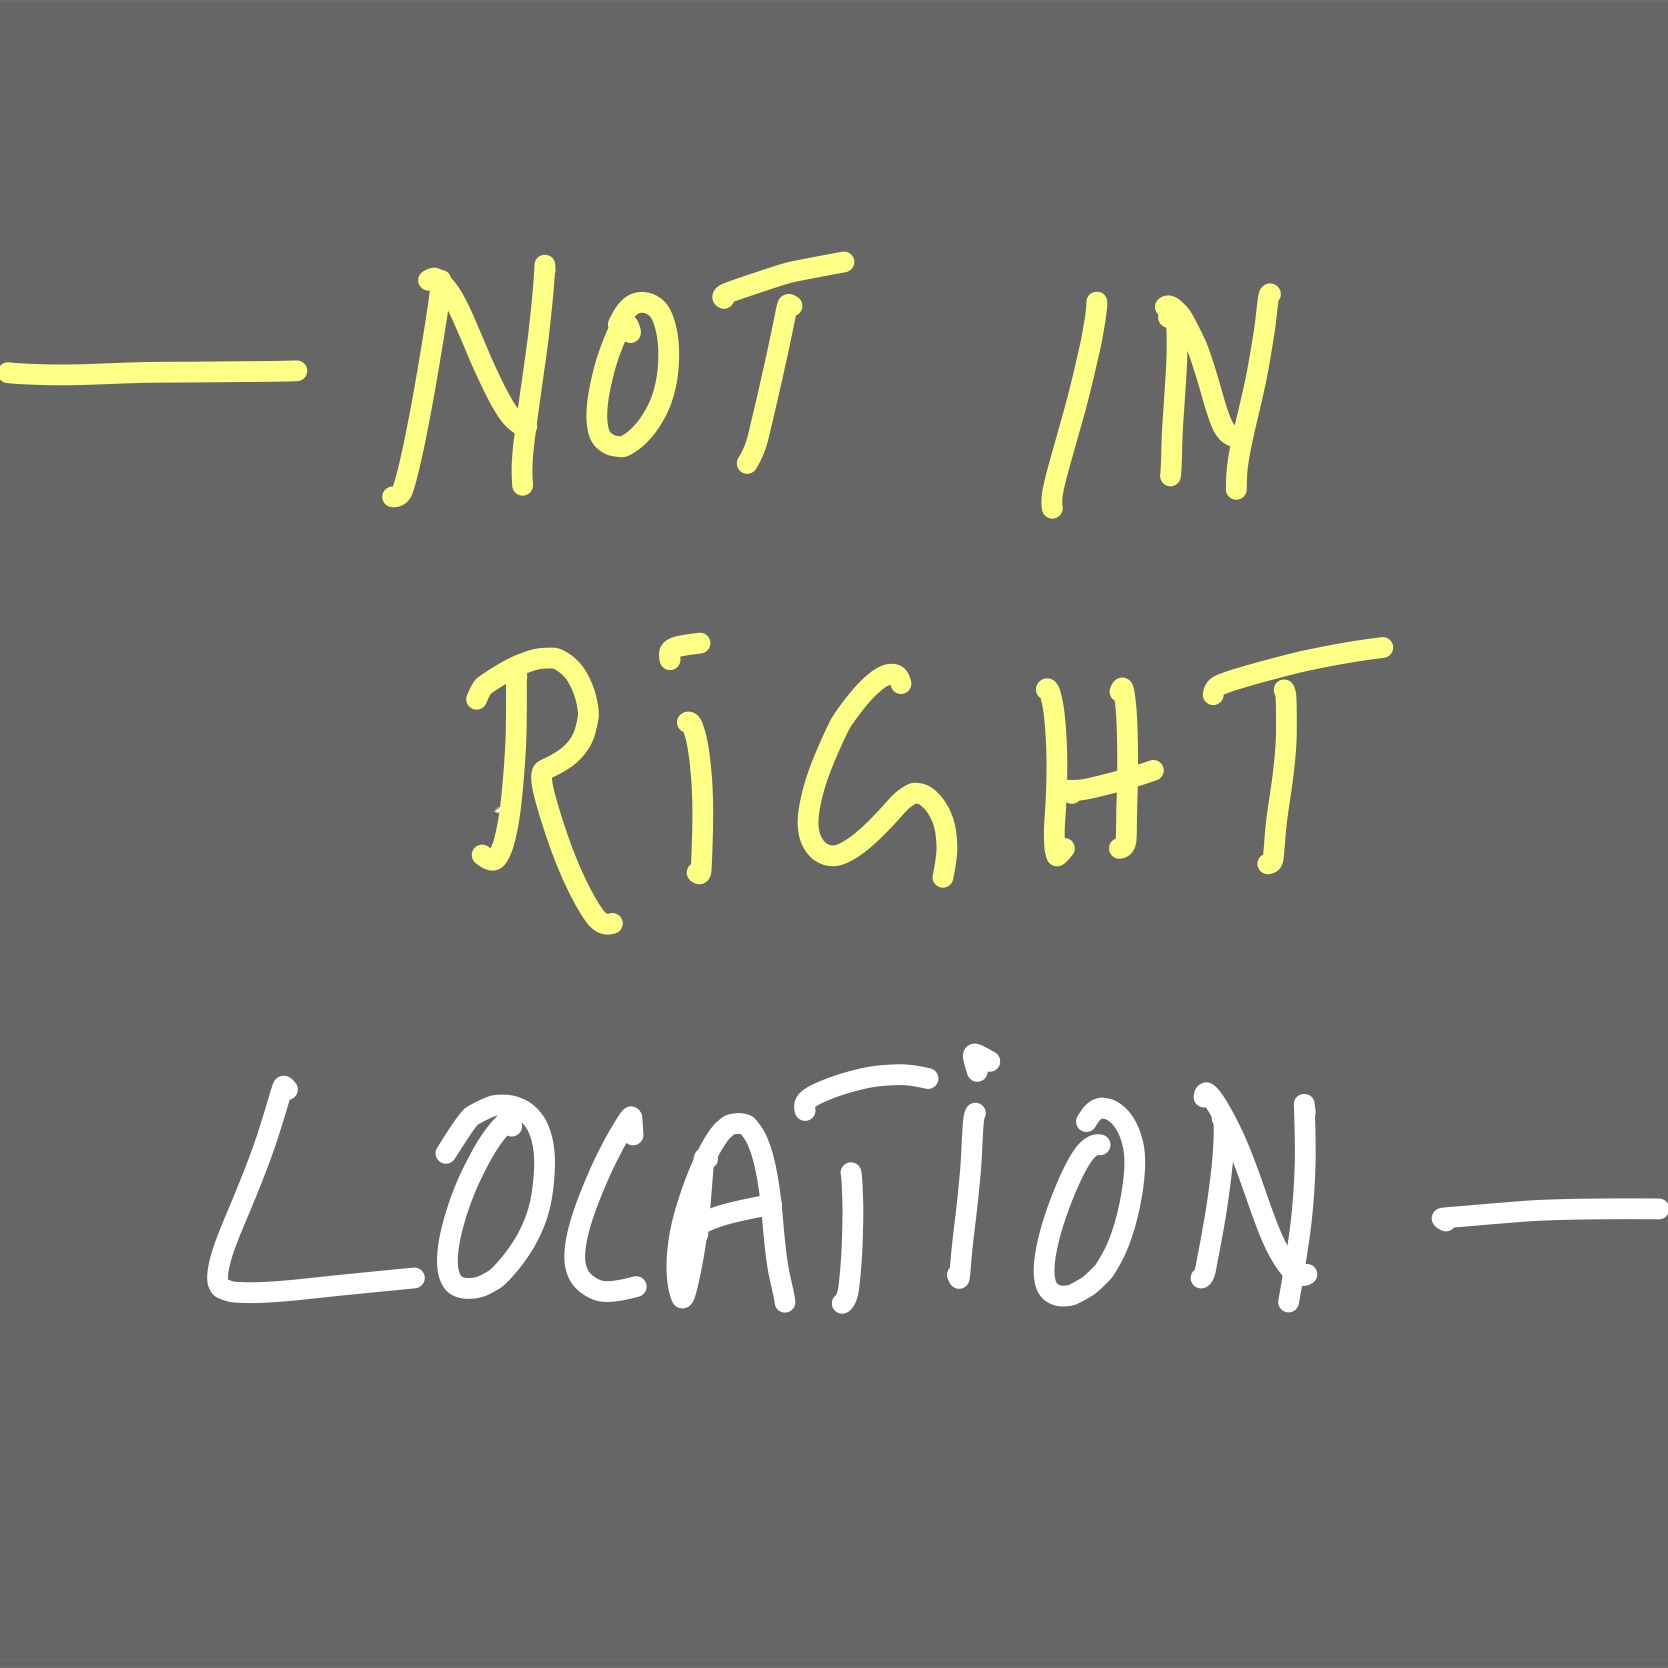 — NOT IN
RiGHT
LOCATiON —